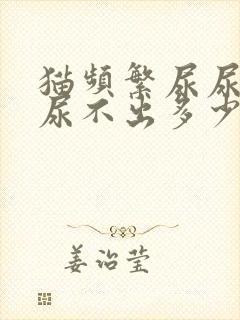 猫频繁尿尿
尿不出多少
姜治莹